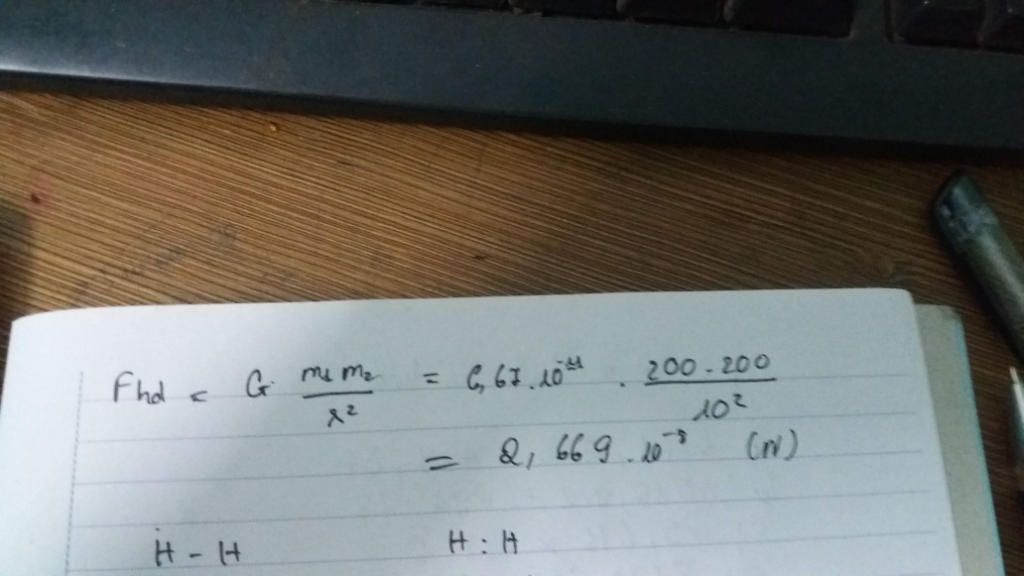 Fhd = G. m₁ m₂ / r² = 6,67.10⁻¹¹ . 200.200 / 10²
= 2,669.10⁻⁸ (N)
H - H H : H